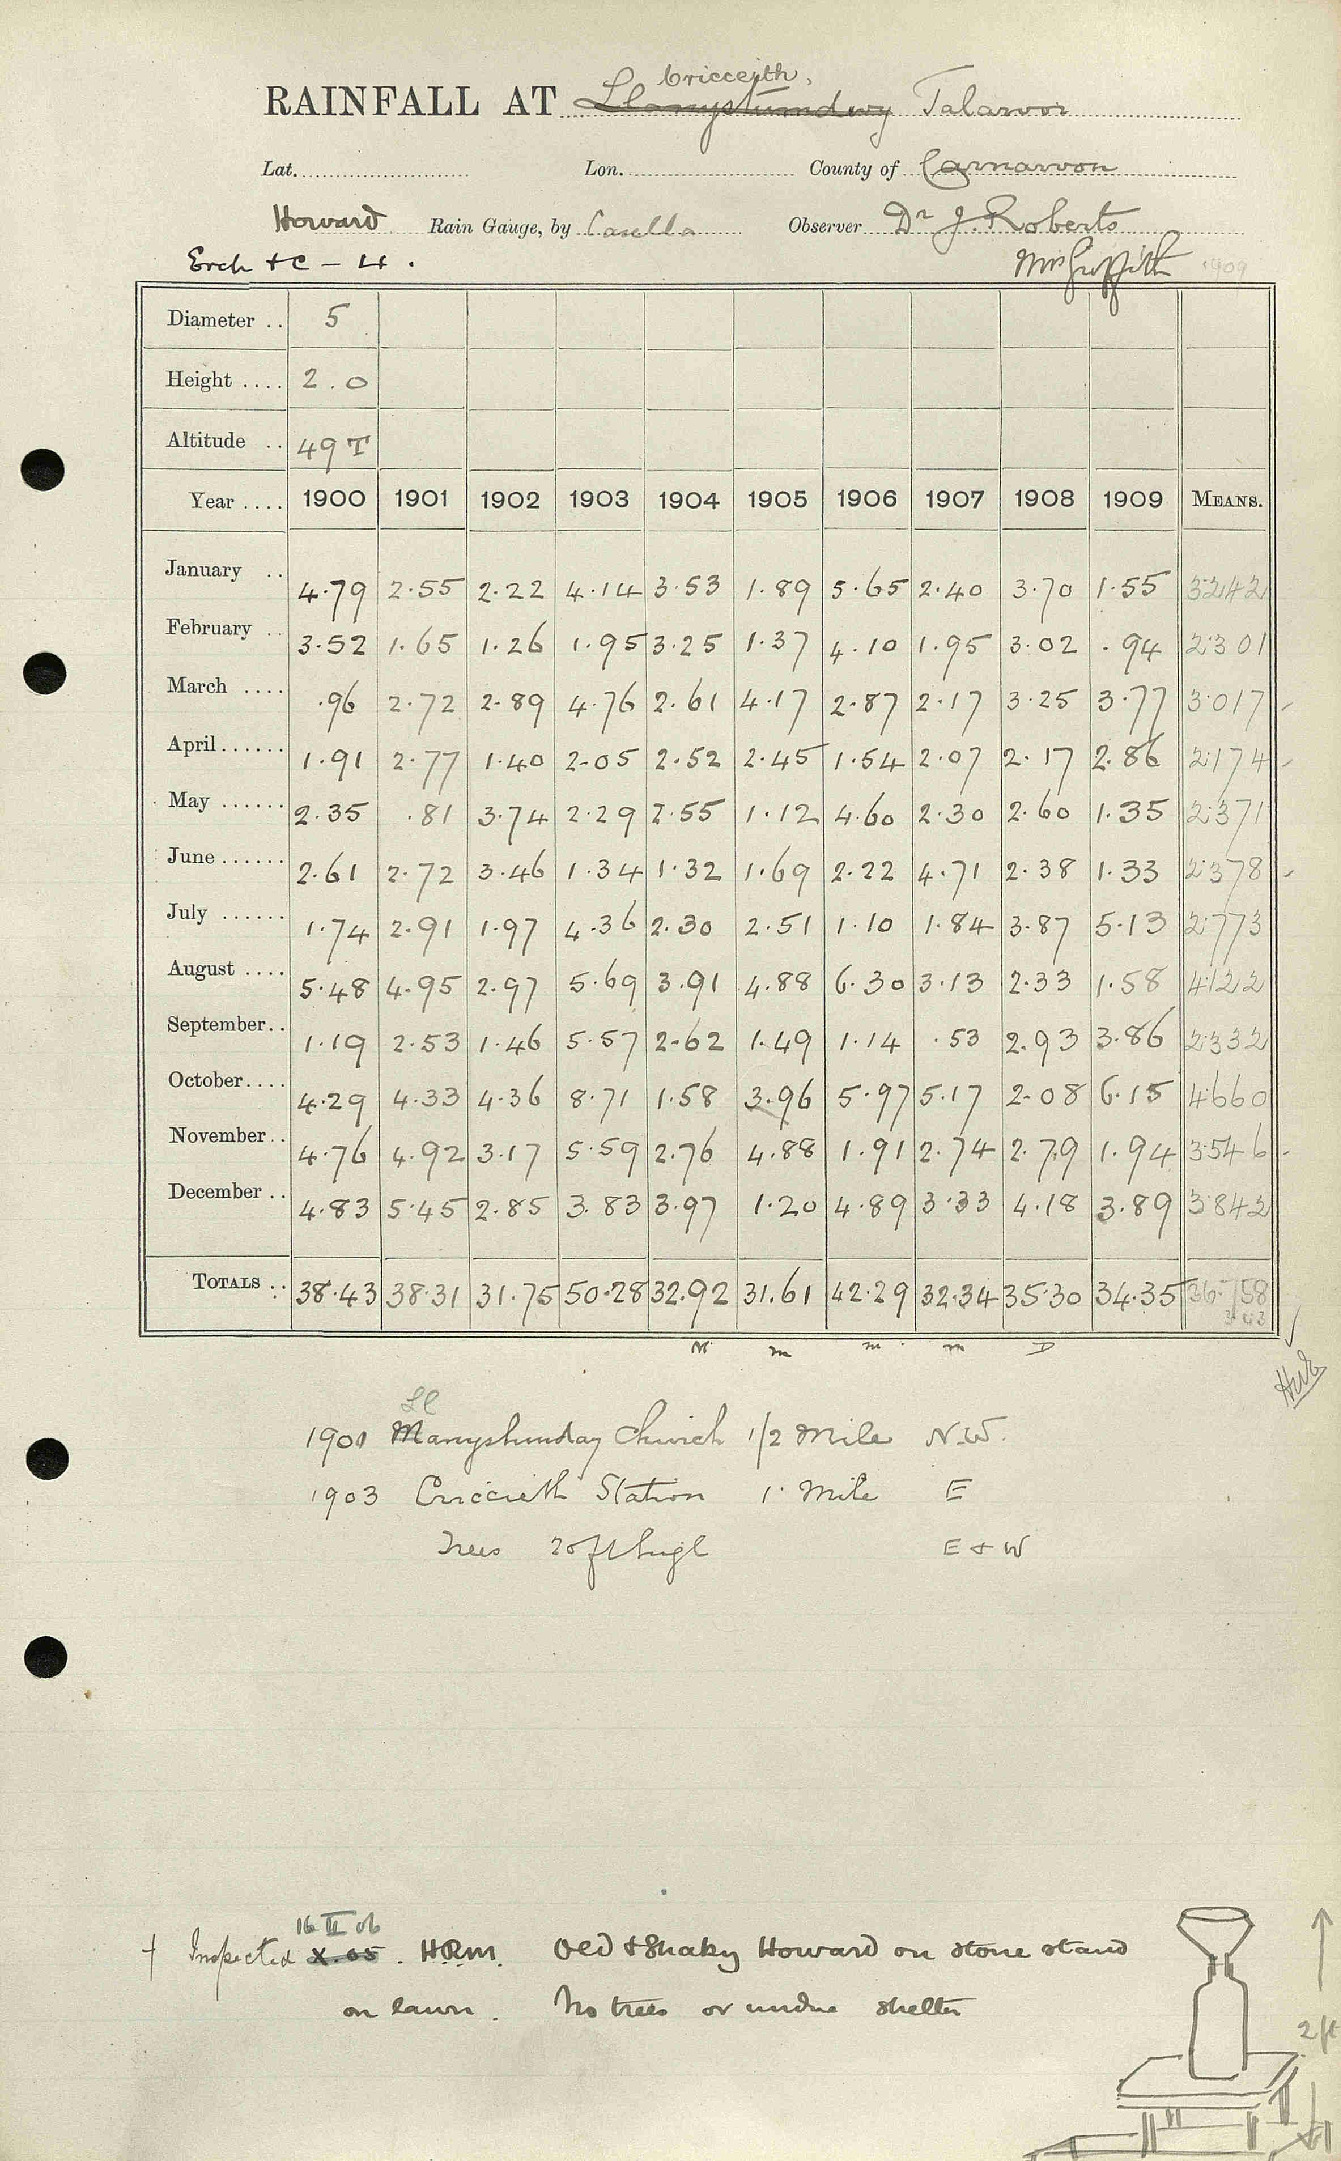 Criccieth,
RAINFALL AT Llanystumdwy Talarvor
Lat. Lon. County of Carnarvon
Howard Rain Gauge, by Casella Observer Dr J. Roberts
Erch + C - 4. Mrs Griffith 1909
Diameter .. 5
Height .... 2.0
Altitude .. 49 T
Year .... 1900 1901 1902 1903 1904 1905 1906 1907 1908 1909 MEANS.
January .. 4.79 2.55 2.22 4.14 3.53 1.89 5.65 2.40 3.70 1.55 3242
February .. 3.52 1.65 1.26 1.95 3.25 1.37 4.10 1.95 3.02 .94 2301
March .... .96 2.72 2.89 4.76 2.61 4.17 2.87 2.17 3.25 3.77 3017
April ...... 1.91 2.77 1.40 2.05 2.52 2.45 1.54 2.07 2.17 2.86 2174
May ...... 2.35 .81 3.74 2.29 2.55 1.12 4.60 2.30 2.60 1.35 2371
June ...... 2.61 2.72 3.46 1.34 1.32 1.69 2.22 4.71 2.38 1.33 2378
July ...... 1.74 2.91 1.97 4.36 2.30 2.51 1.10 1.84 3.87 5.13 2773
August .... 5.48 4.95 2.97 5.69 3.91 4.88 6.30 3.13 2.33 1.58 4122
September .. 1.19 2.53 1.46 5.57 2.62 1.49 1.14 .53 2.93 3.86 2332
October .... 4.29 4.33 4.36 8.71 1.58 3.96 5.97 5.17 2.08 6.15 4660
November .. 4.76 4.92 3.17 5.59 2.76 4.88 1.91 2.74 2.79 1.94 3546
December .. 4.83 5.45 2.85 3.83 3.97 1.20 4.89 3.33 4.18 3.89 3842
TOTALS .. 38.43 38.31 31.75 50.28 32.92 31.61 42.29 32.34 35.30 34.35 36.758
M m m m D
Ll
1900 Manystunday Church 1/2 Mile N.W.
1903 Criccieth Station 1 Mile E
Trees 20 ft high E + W
16 II 06
+ Inspected X.05. HRM. Old + Shaky Howard on stone stand
on lawn. No trees or undue shelter
2 ft